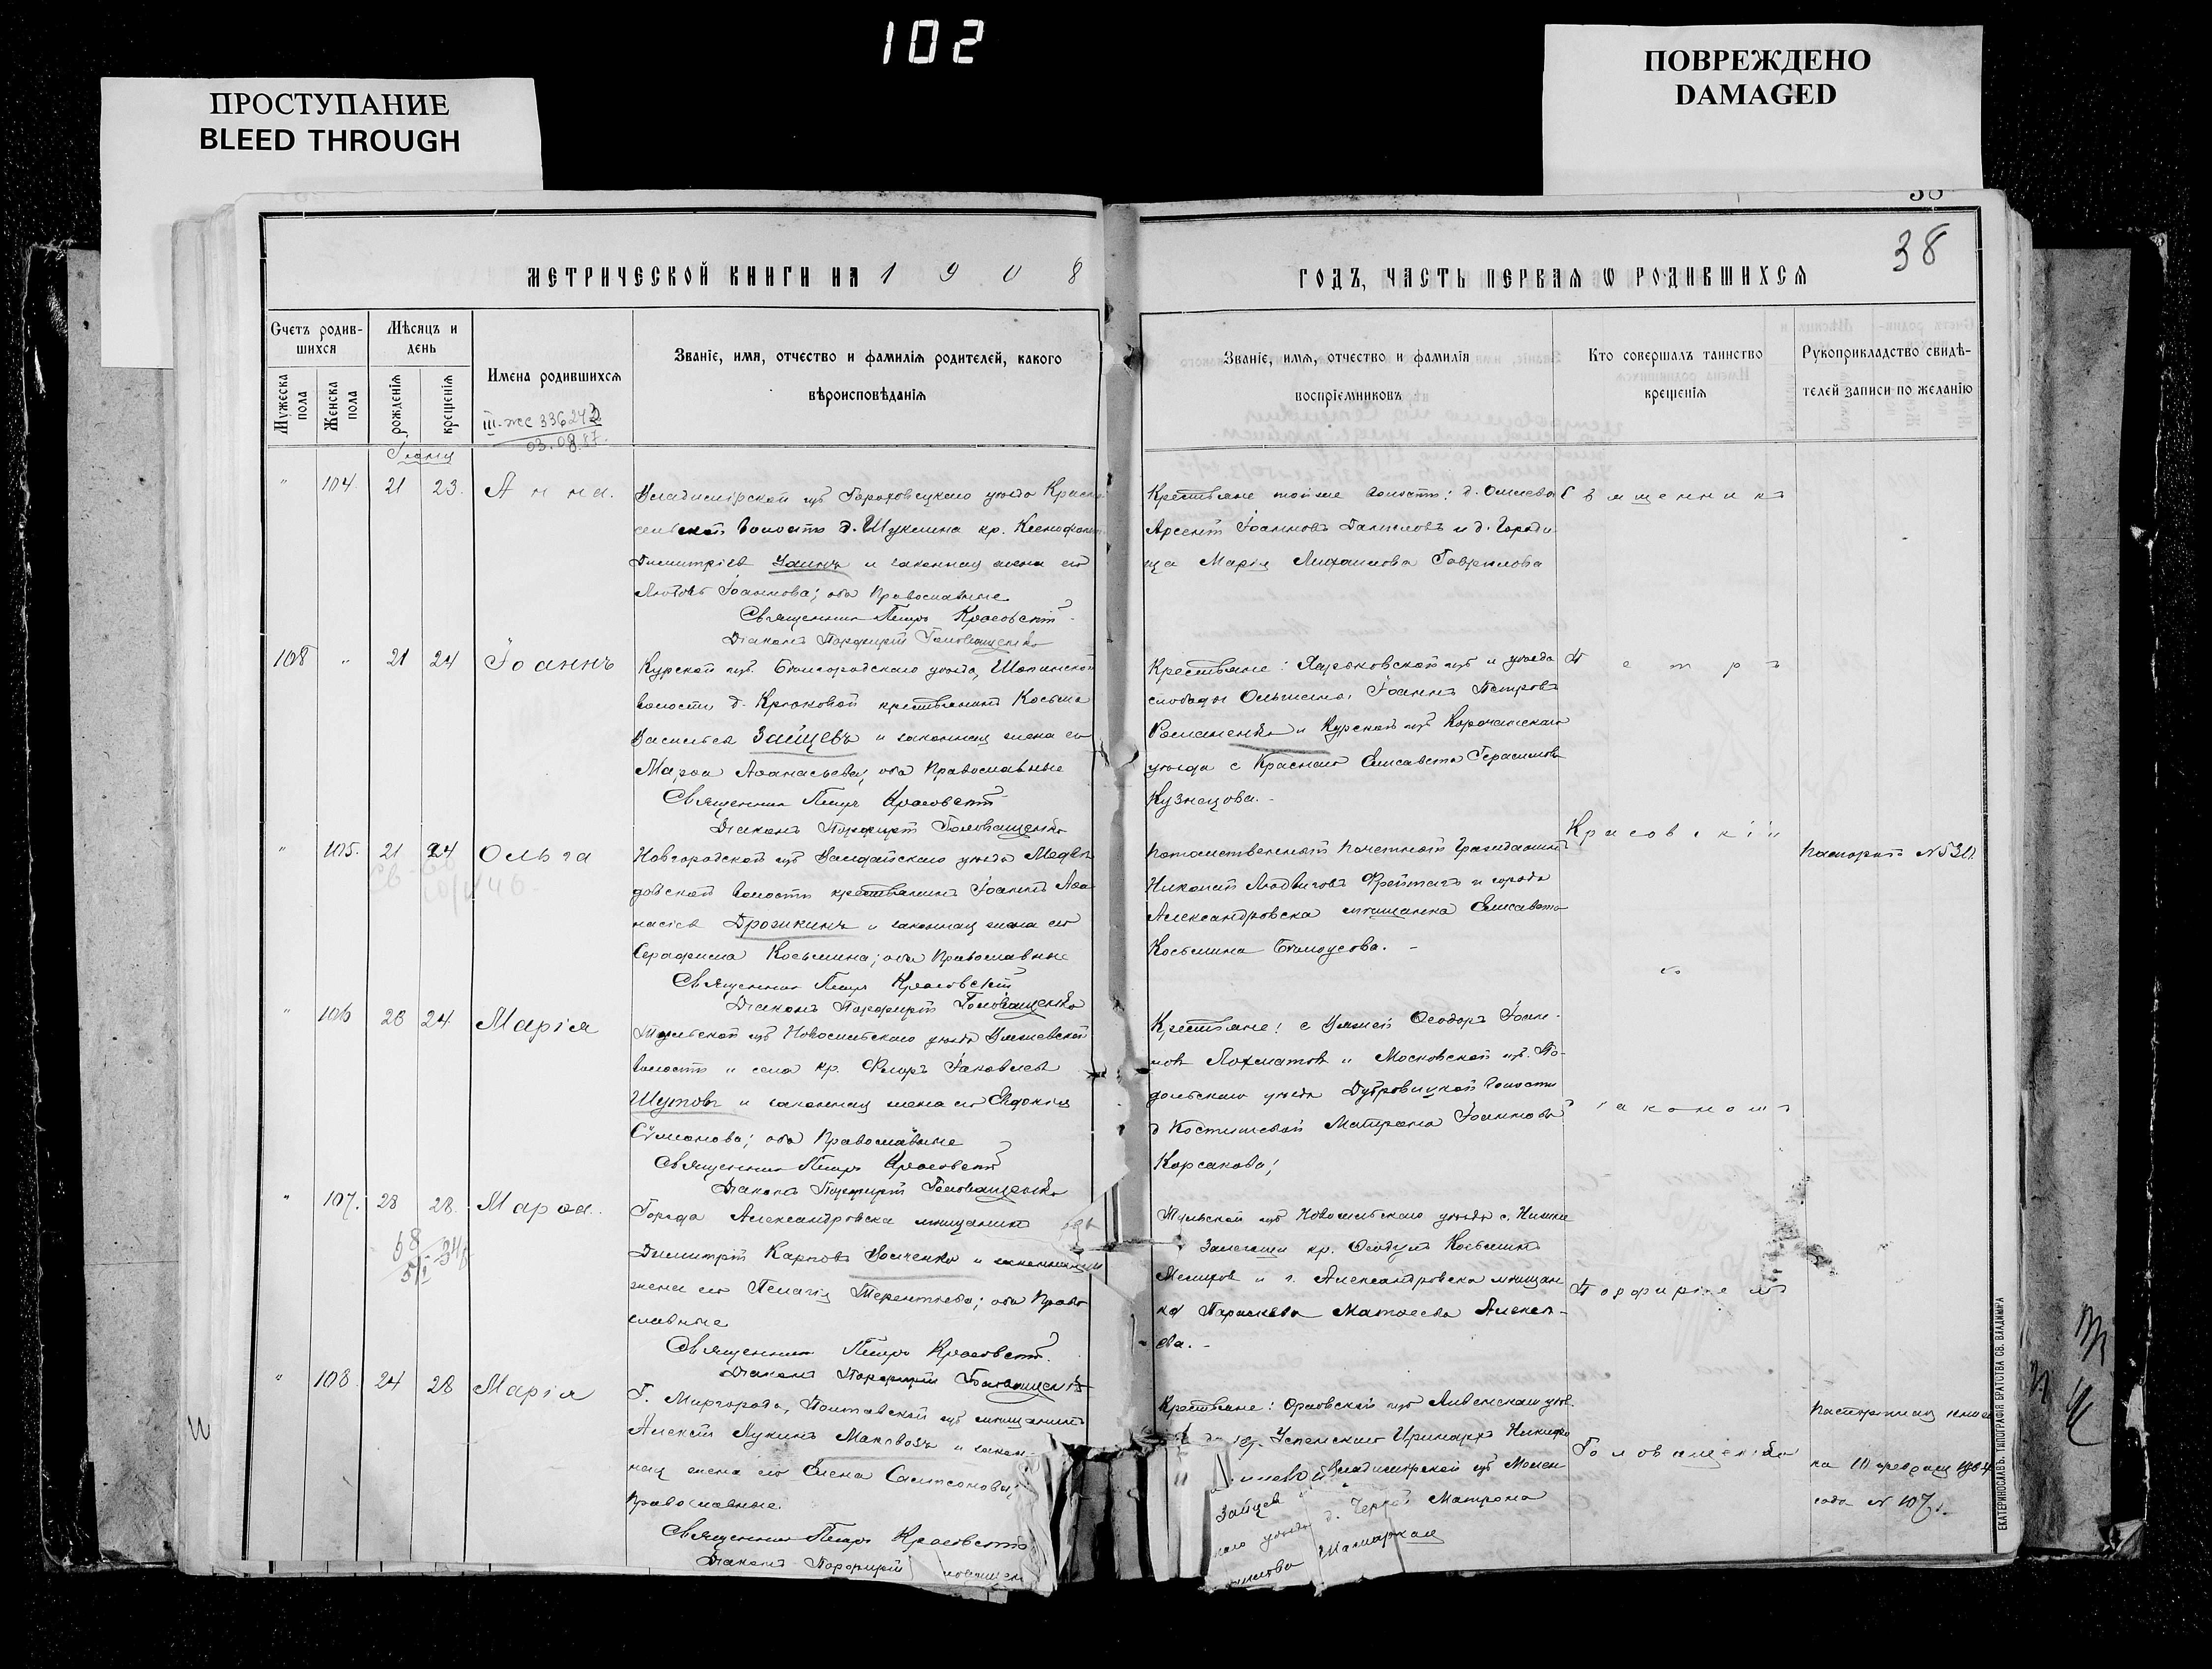 102
ПРОСТУПАНИЕ
BLEED THROUGH
ПОВРЕЖДЕНО
DAMAGED
38
МЕТРИЧЕСКОЙ КНИГИ НА 1908
ГОДЪ, ЧАСТЬ ПЕРВАЯ Ѡ РОДИВШИХСЯ
Счетъ родив-
шихся
Мѣсяцъ и
день
Имена родившихся
Званіе, имя, отчество и фамилія родителей, какого
вѣроисповѣданія
Мужеска пола
Женска пола
рожденія
крещенія
Званіе, имя, отчество и фамилія
воспріемниковъ
Кто совершалъ таинство
крещенія
Рукоприкладство свидѣ-
телей записи по желанію
03.08.87.
" 104. 21 23. Анна.
Владимірской губ Гороховецкаго уѣзда Красно
сельской волости д. Шуклина кр. Ксенофонтъ
Димитріевъ и законная жена его
Любовь Іоаннова; оба Православные
Священникъ Петръ Красовскій
Діаконъ Порфирій Головащенко
Крестьяне той же волости: д.
Арсеній Іоанновъ Даниловъ и д. Городи
ща Марія Михаилова Гаврилова
108 " 21 24 Іоаннъ
Курской губ. Бѣлгородскаго уѣзда, Шопинской
волости д. Крюковой крестьянинъ Косьма
Васильевъ Зайцевъ и законная жена его
Марѳа Аѳанасьева; оба Православные
Священникъ Петръ Красовскій
Діаконъ Порфирій Головащенко
Крестьяне: Харьковской губ и уѣзда
слободы Ольшаны Іоаннъ Петровъ
Романенко и Курской губ Корочанскаго
уѣзда с Краснаго Елисавета Герасимова
Кузнецова.-
" 105. 21 24 Ольга
Новгородской губ Валдайскаго уѣзда Медвѣ
довской волости крестьянинъ Іоаннъ Аѳа
насіевъ Дрожкинъ и законная жена его
Серафима Косьмина; оба Православные
Священникъ Петръ Красовскій
Діаконъ Порфирій Головащенко
Потомственный Почетный Гражданинъ
Николай Людвиговъ Фрейтагъ и города
Александровска мѣщанка Елисавета
Косьмина Бѣлоусова.-
Паспортъ № 521.
" 106 20 24. Марія
Тульской губ Новосильскаго уѣзда
волости и села кр. Флоръ Іаковлевъ
Шутовъ и законная жена его Евдокія
Симонова; оба Православные
Священникъ Петръ Красовскій
Діаконъ Порфирій Головащенко
Крестьяне: с Ѳеодоръ Іоан-
новъ Лохматовъ и Московской губ. По-
дольскаго уѣзда Дубровицкой волости
д Матрона Іоаннова
Корсакова;
" 107. 28 28. Марѳа.
Города Александровска мѣщанинъ
Димитрій Карповъ и законная
жена его Пелагія Терентьева; оба Право
славные
Священникъ Петръ Красовскій.
Діаконъ Порфирій Головащенко
Тульской губ Новосильскаго уѣзда с. Нижне
Залегощи кр. Ѳеодулъ Косьминъ
и г. Александровска мѣщан
ка Параскева Матѳеева Алексѣ-
ева.-
" 108 24 28 Марія
Г. Миргорода, Полтавской губ мѣщанинъ
Алексѣй Лукинъ Маковозъ и закон-
ная жена его Елена Сампсонова;
Православные.
Священникъ Петръ Красовскій
Діаконъ Порфирій
Крестьяне: Орловской губ Ливенскаго уѣз.
Успенскаго Иринархъ
Владимірской губ Мелен
Зайцев
каго уѣзда д. Матрона
Священникъ
Петръ
Красовскій
съ
діакономъ
Порфиріемъ
Головащенко
№ 107.
ЕКАТЕРИНОСЛАВЪ. ТИПОГРАФІЯ БРАТСТВА СВ. ВЛАДИМІРА